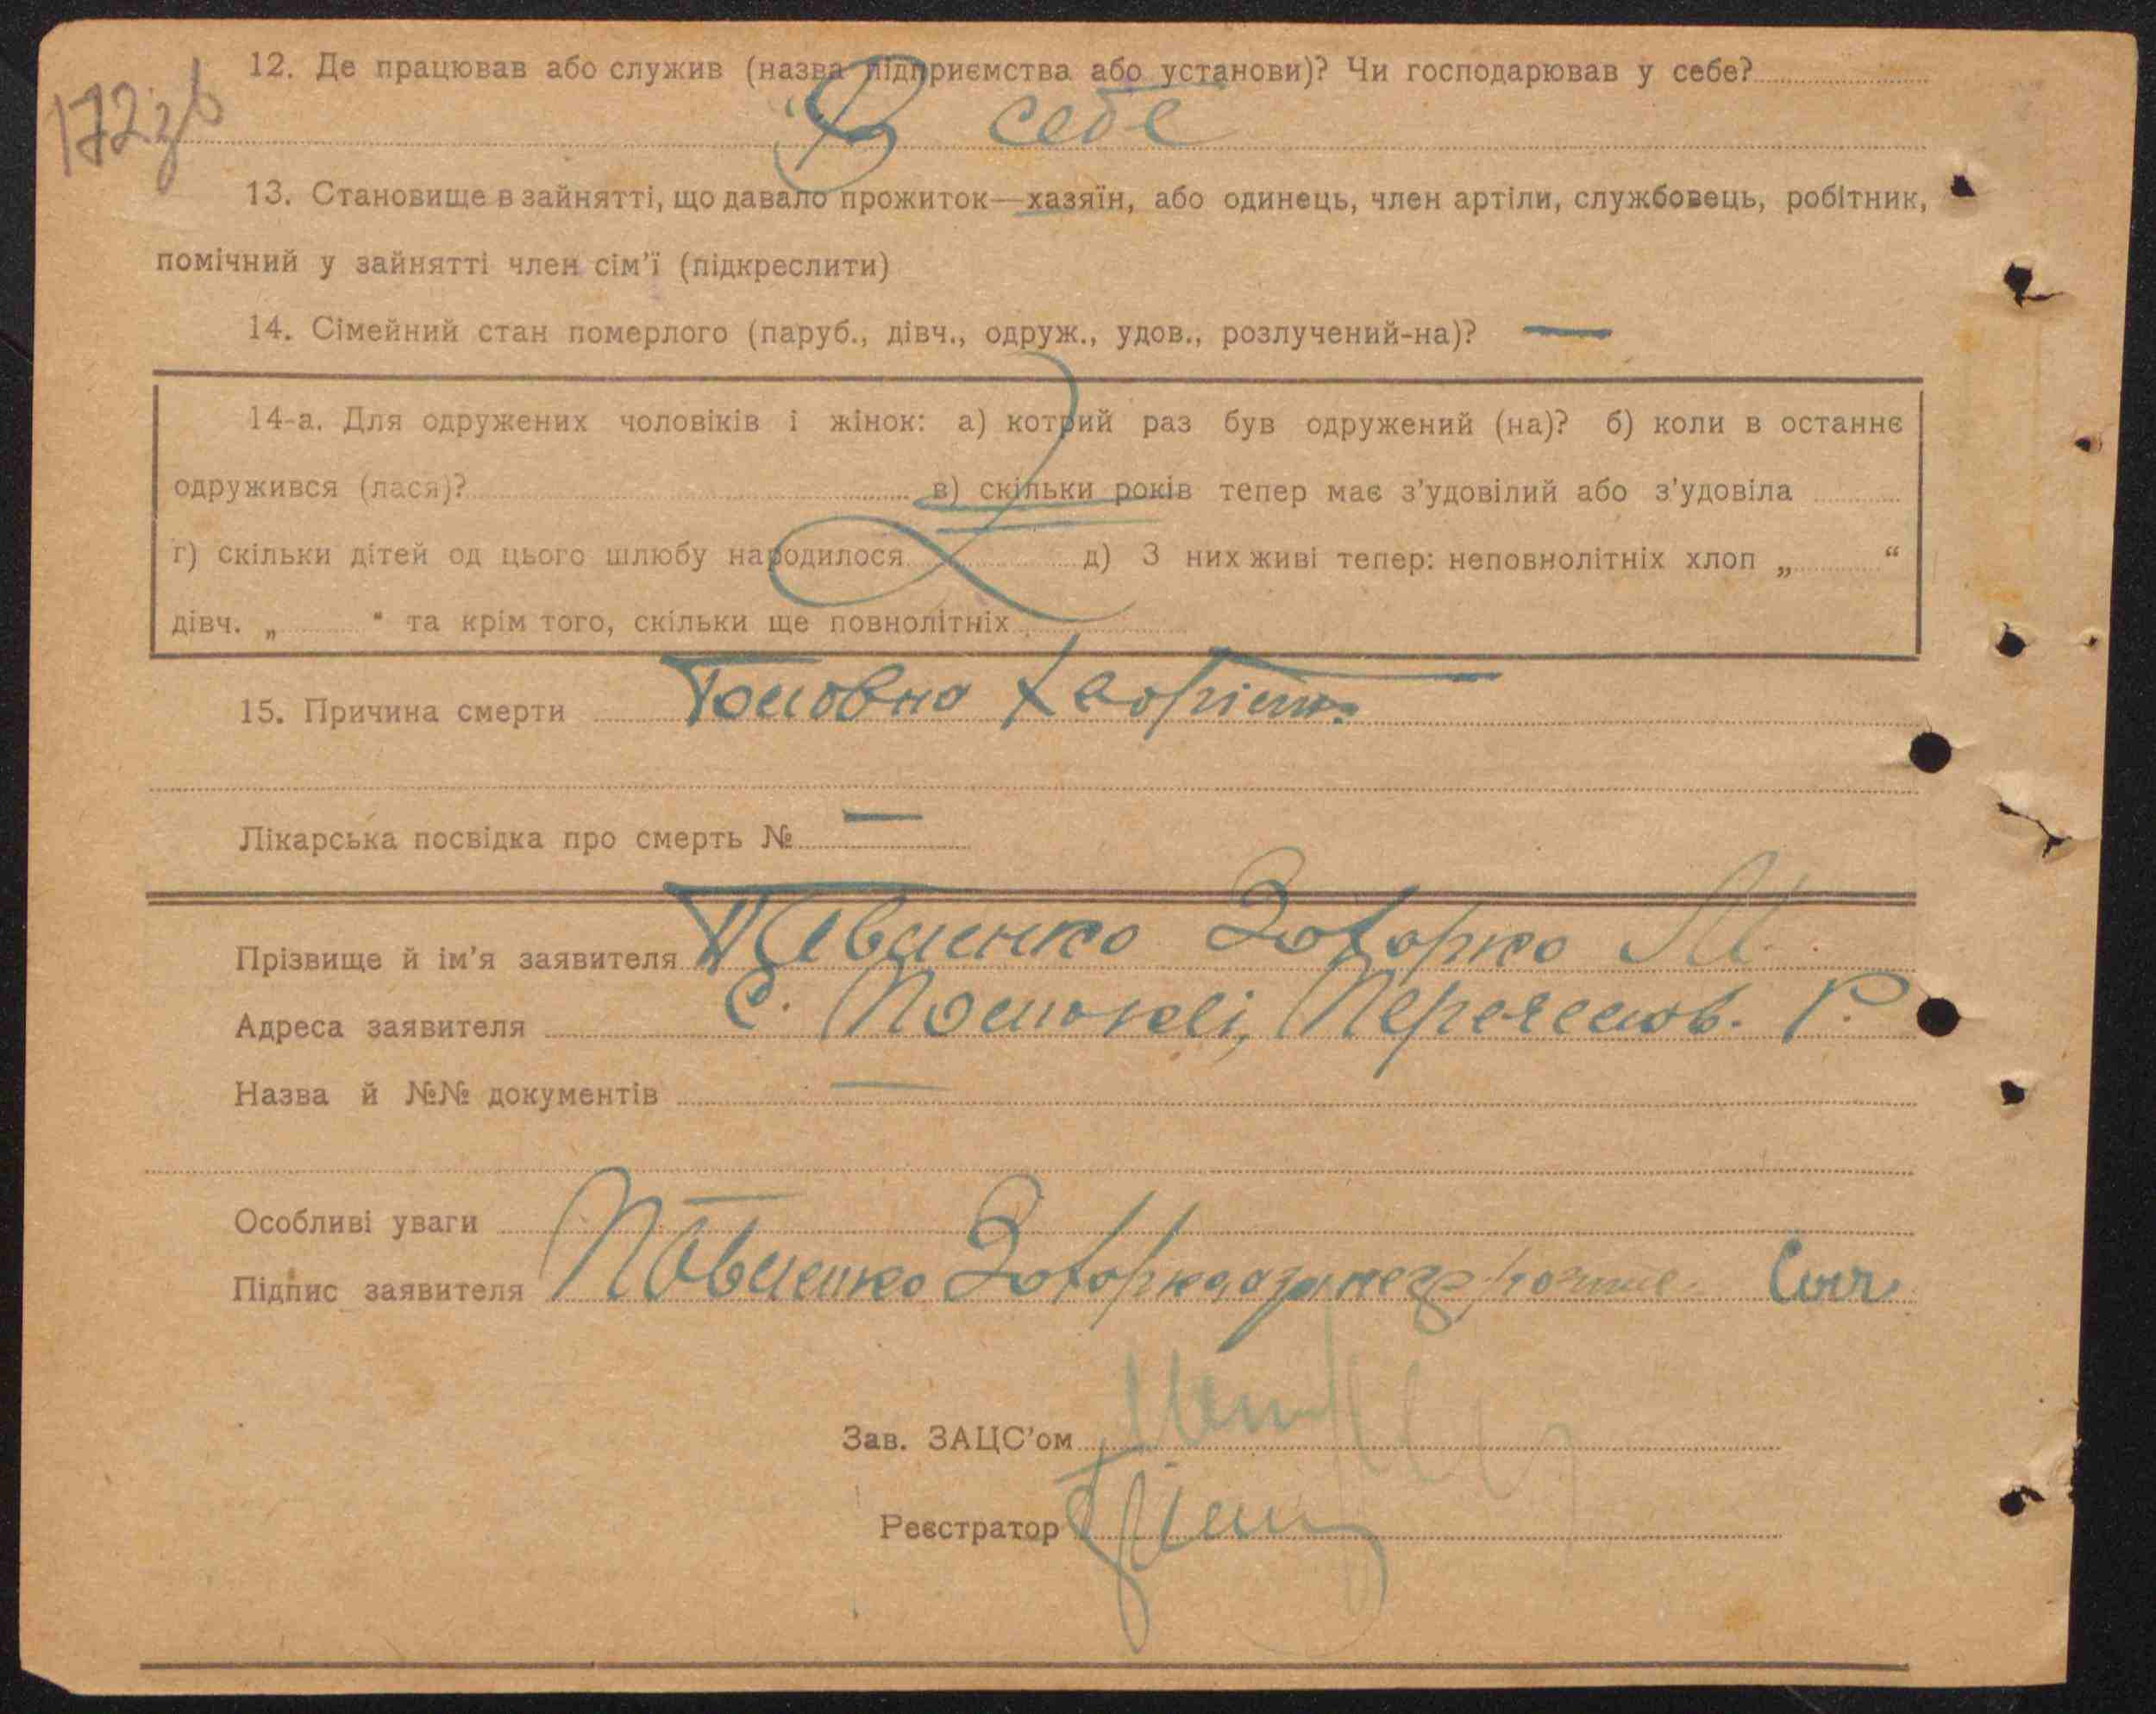 172зв
12. Де працював або служив (назва підприємства або установи)? Чи господарював у себе?
В себе
13. Становище в зайнятті, що давало прожиток—хазяїн, або одинець, член артіли, службовець, робітник,
помічний у зайнятті член сім'ї (підкреслити)
14. Сімейний стан померлого (паруб., дівч., одруж., удов., розлучений-на)? —
14-а. Для одружених чоловіків і жінок: а) котрий раз був одружений (на)? б) коли в останнє
одружився (лася)? в) скільки років тепер має з'удовілий або з'удовіла
г) скільки дітей од цього шлюбу народилося д) З них живі тепер: неповнолітніх хлоп „ “
дівч. „ “ та крім того, скільки ще повнолітніх
15. Причина смерти Головна
Лікарська посвідка про смерть № —
Прізвище й ім'я заявителя Захарко М.
Адреса заявителя с.
Назва й №№ документів —
Особливі уваги
Підпис заявителя Захарко
Зав. ЗАЦС'ом
Реєстратор